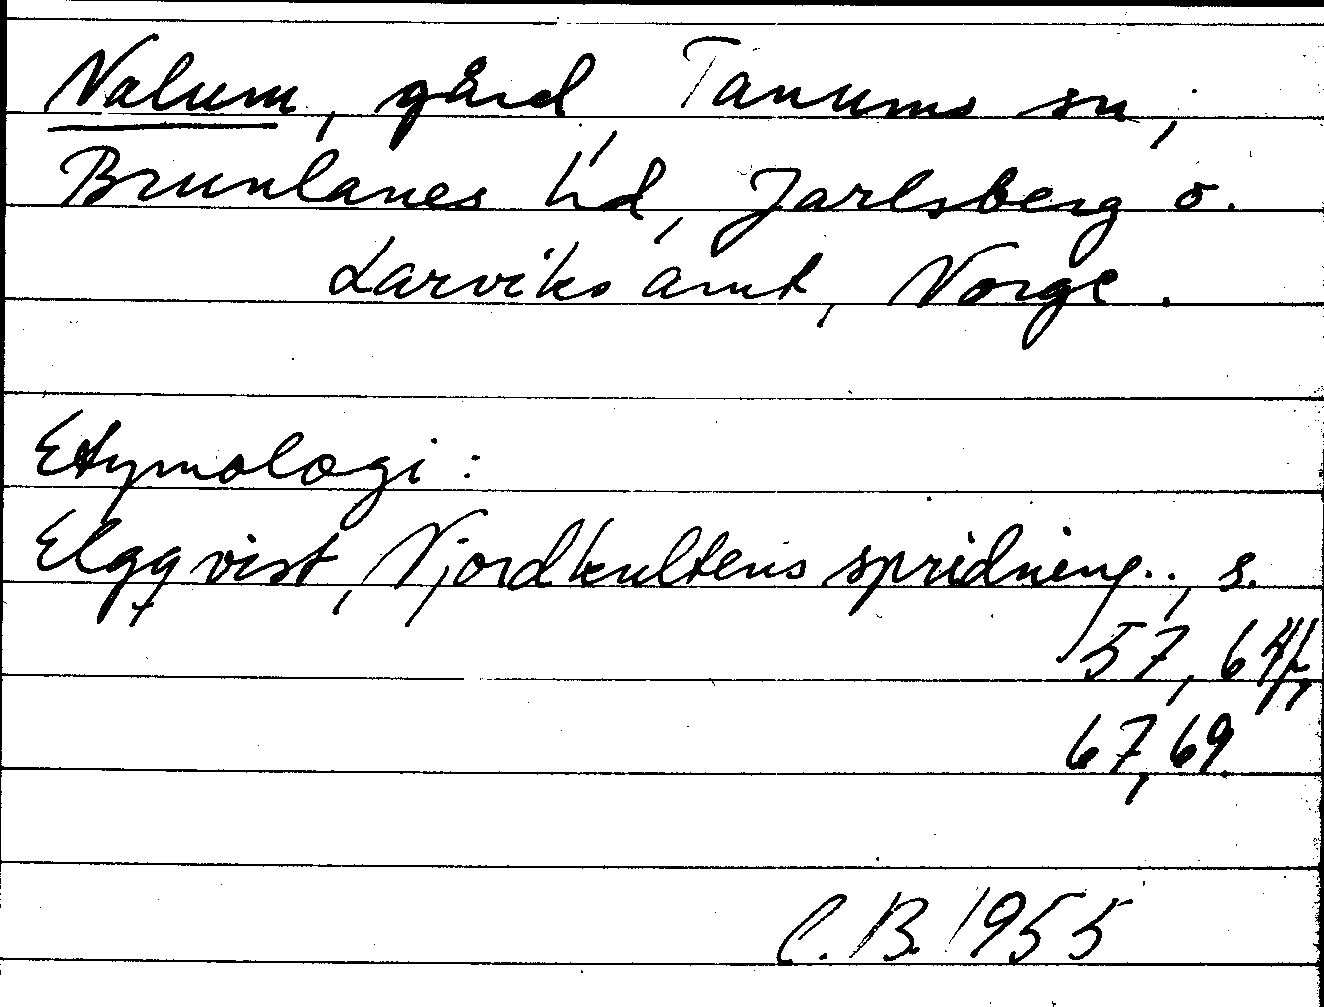 Nalum, gård, Tanums sn,
Brunlanes hd, Jarlsberg o.
Larviks amt, Norge.
Etymologi:
Elgqvist, Njordkultens spridning.., s.
57, 64f,
67, 69.
C.B. 1955